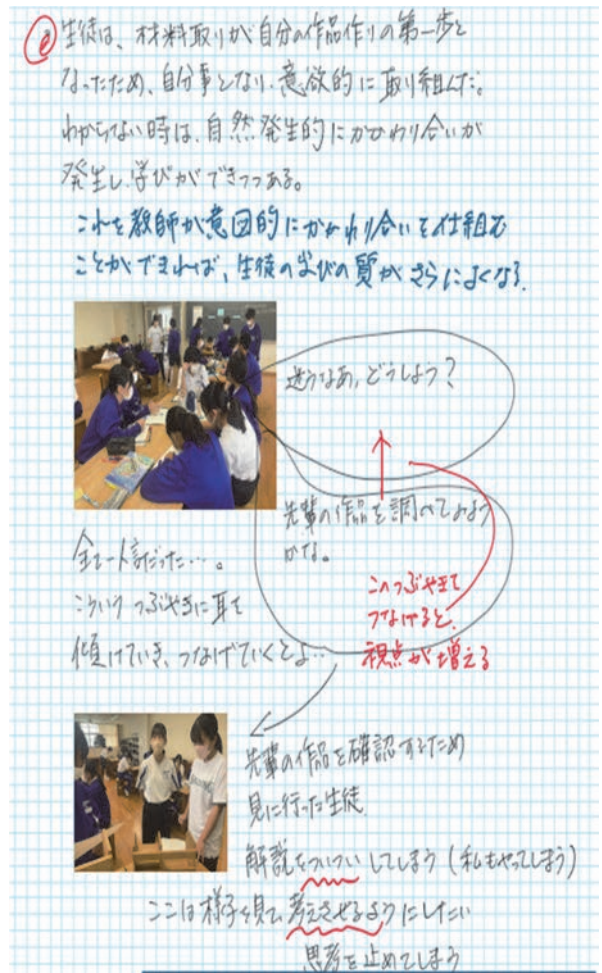 生徒は、材料取りが自分の作品作りの第一歩と
なったため、自分事となり、意欲的に取り組んだ。
わからない時は、自然発生的にかかわり合いが
発生し、学びができつつある。
これを教師が意図的にかかわり合いを仕組む
ことができれば、生徒の学びの質がさらによくなる。
迷うなあ、どうしよう?
先輩の作品を調べてみよう
かな。
全て一人言だった…。
こういうつぶやきに耳を
傾けていき、つなげていくとよ…
このつぶやきを
つなげると、
視点が増える
先輩の作品を確認するため
見に行った生徒
解説をついついしてしまう(私もやってしまう)
ここは様子を見て、考えさせるようにしたい
思考を止めてしまう